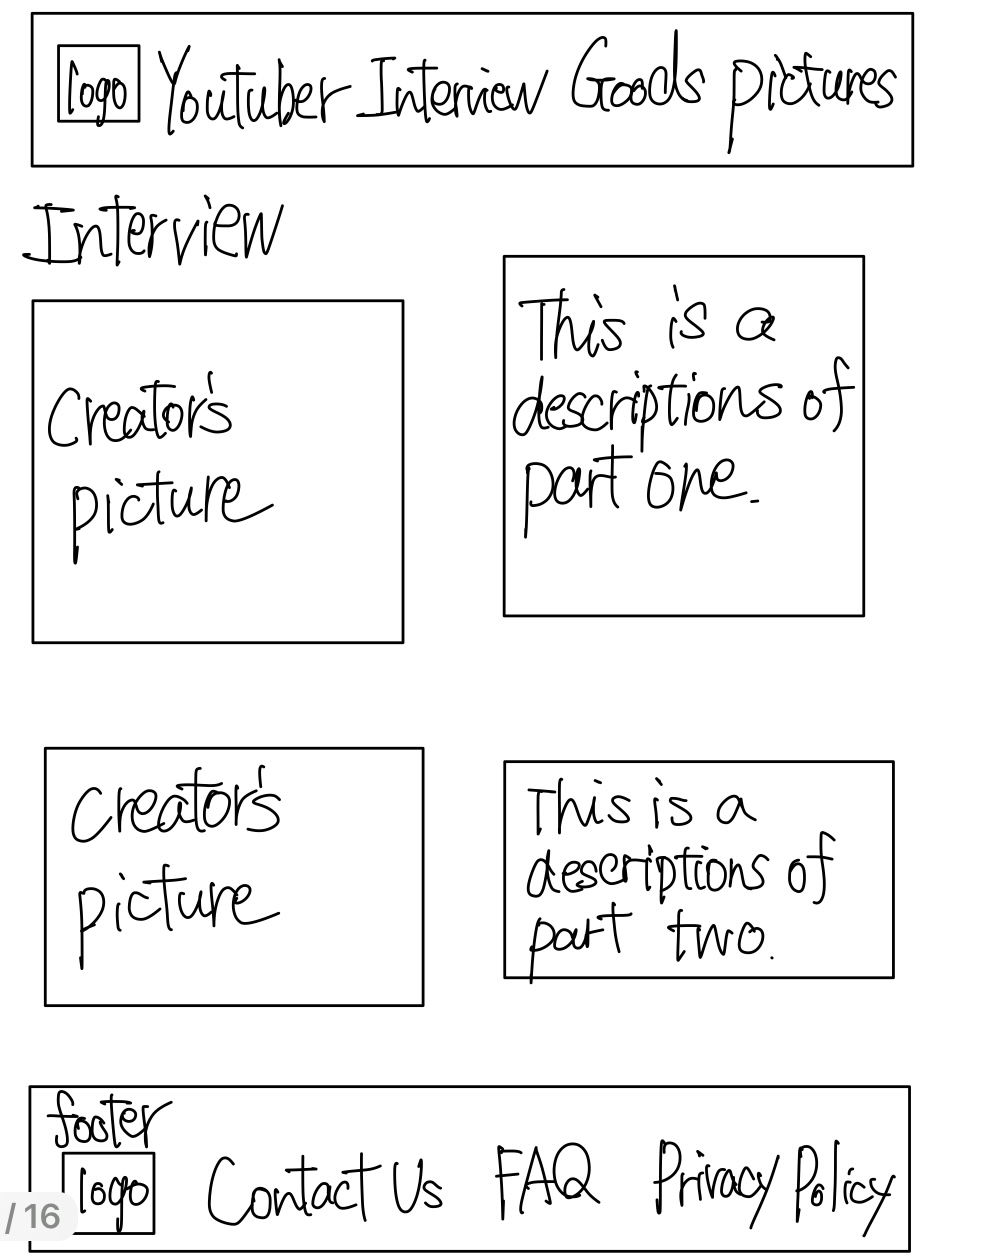 logo Youtuber Interview Goods pictures
Interview
Creator's
picture
This is a
descriptions of
part one.
Creator's
picture
This is a
descriptions of
part two.
footer
logo Contact Us FAQ Privacy Policy
/ 16